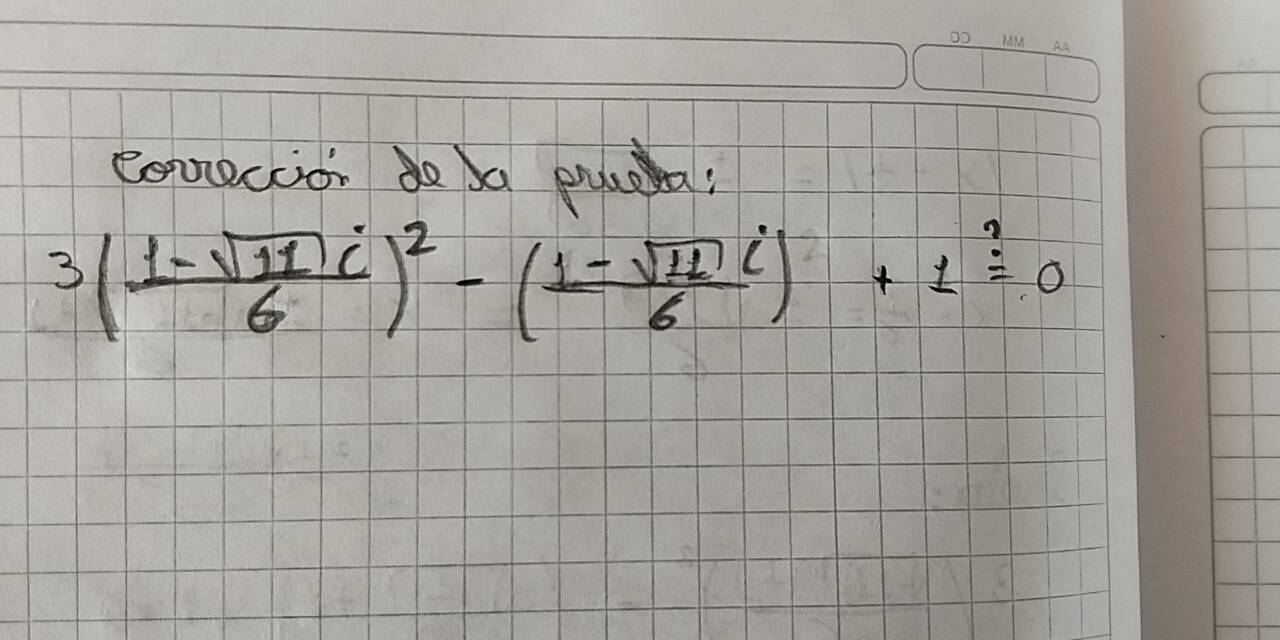 DD MM AA
Corrección de la prueba:
3(\frac{1-\sqrt{11}i}{6})^2 - (\frac{1-\sqrt{11}i}{6}) + 1 \stackrel{?}{=} 0